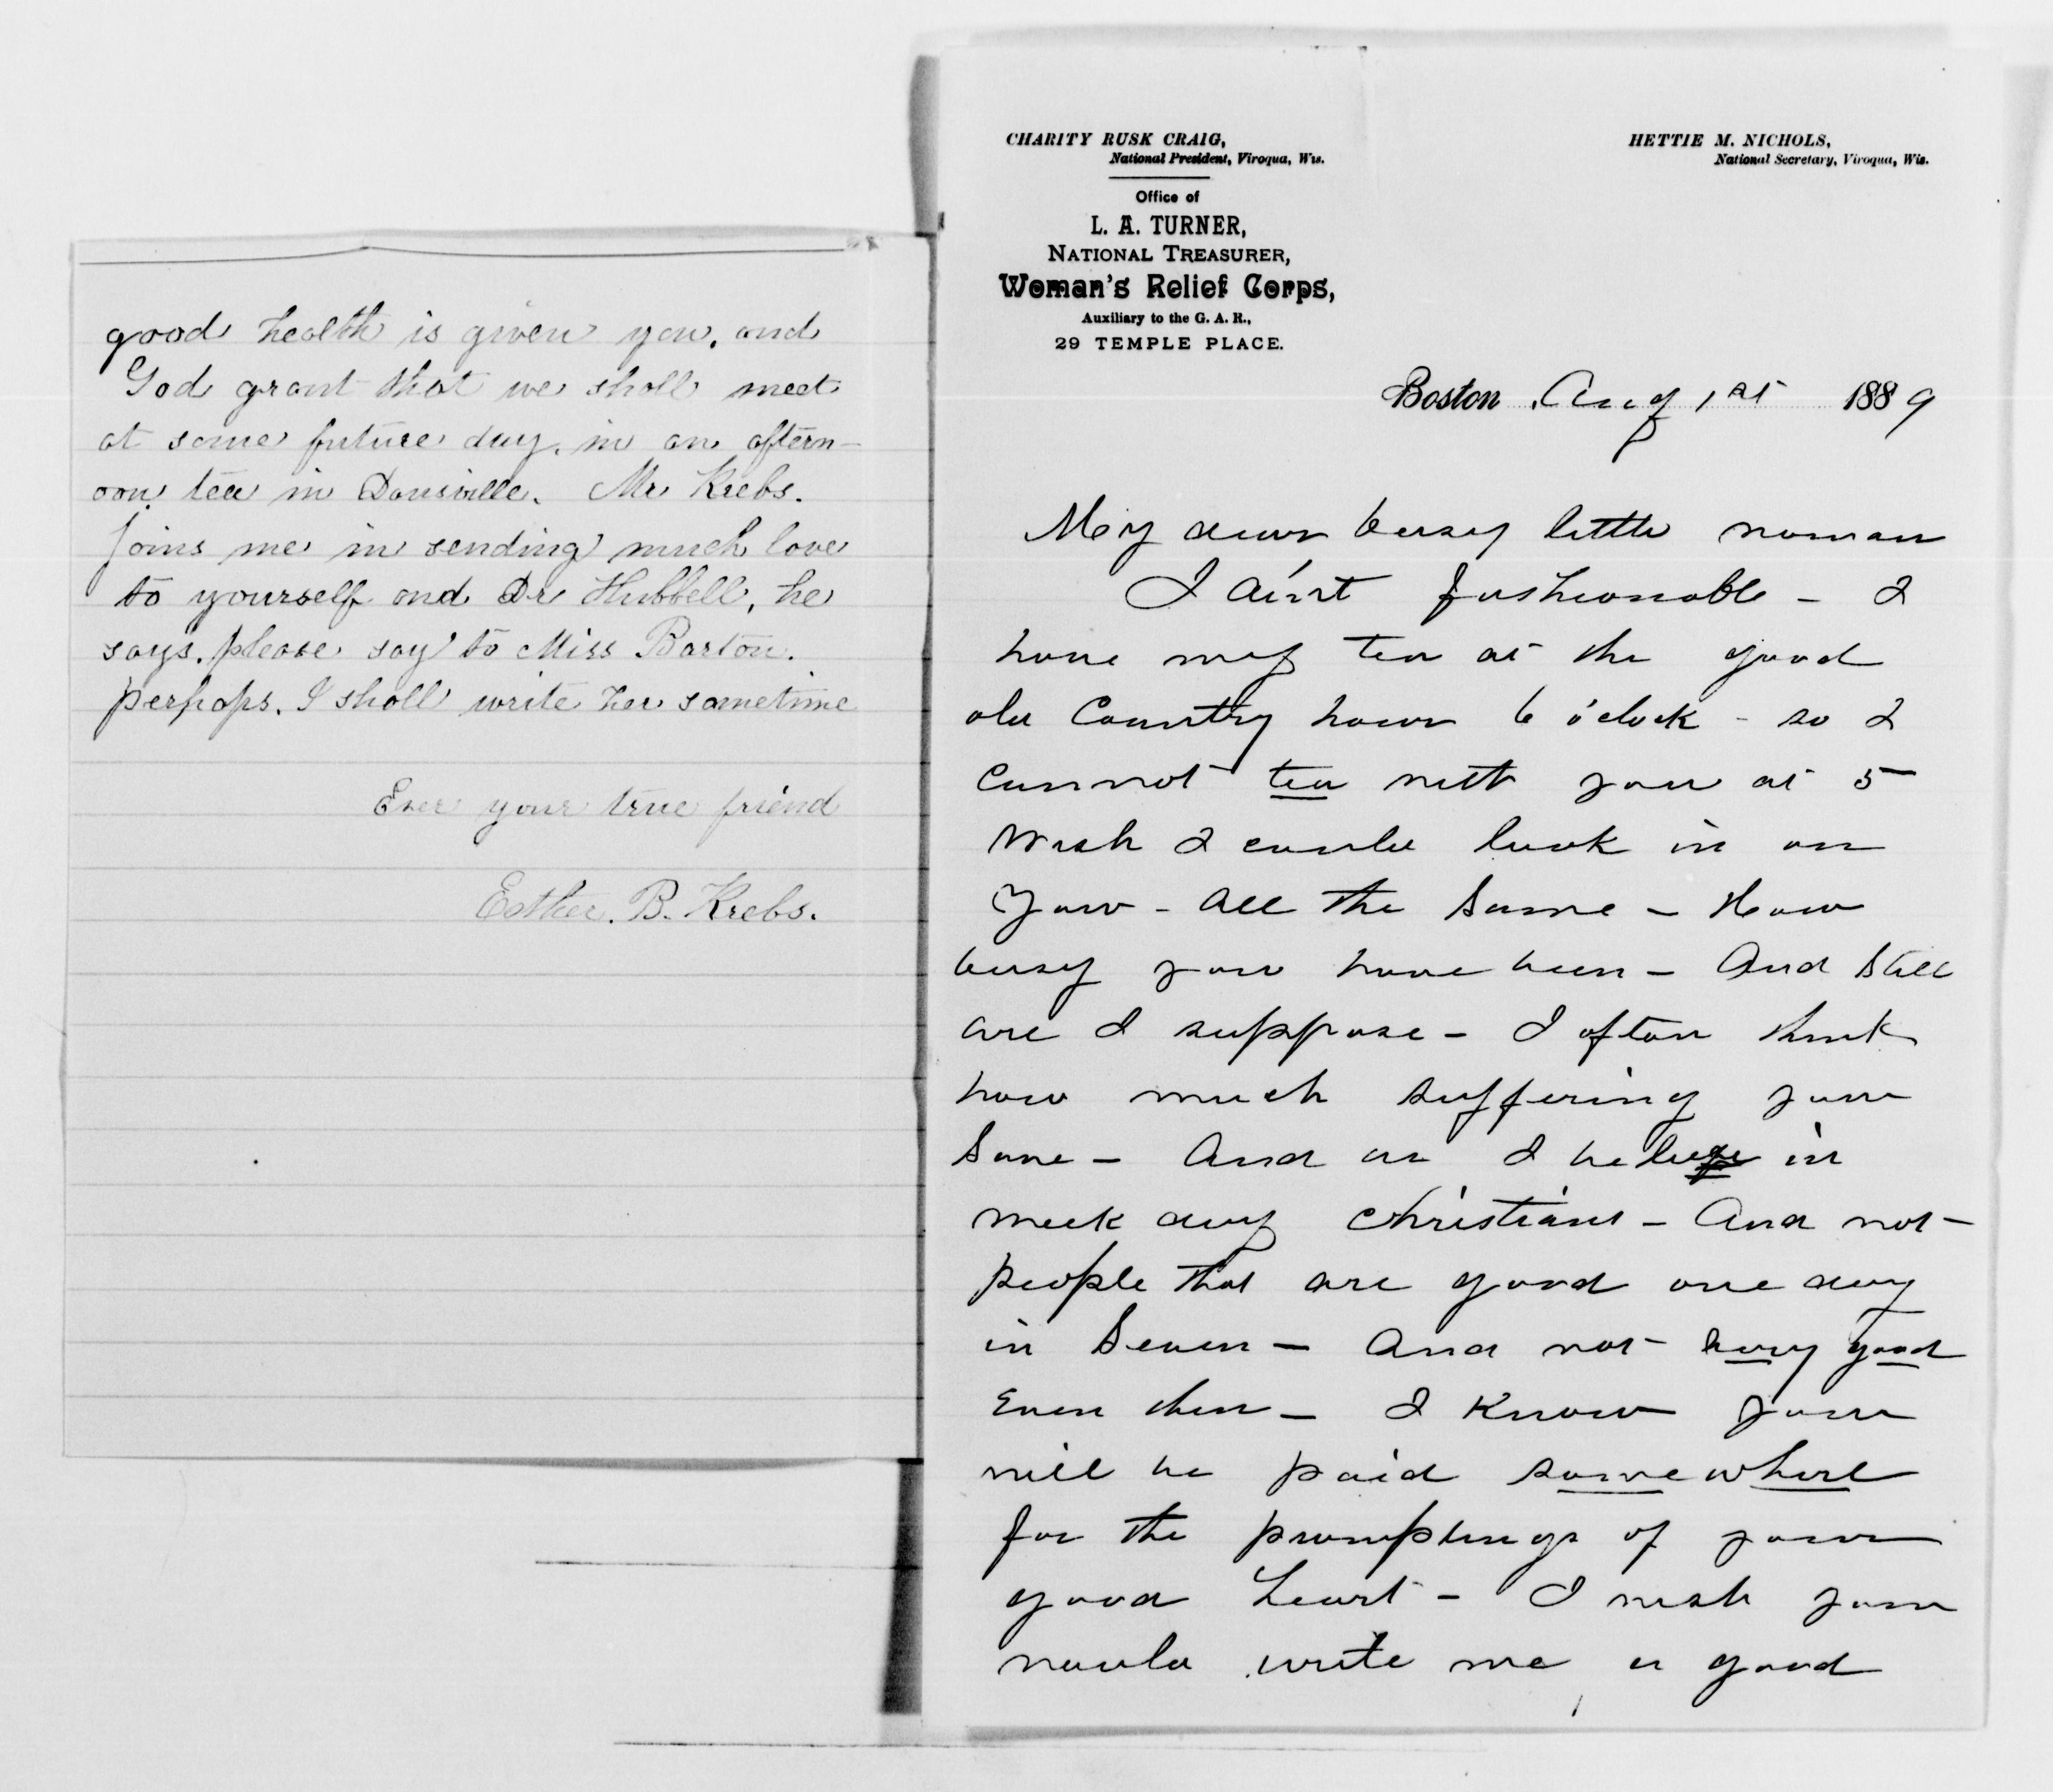 good health is given you, and
God grant that we shall meet
at some future day, in an aftern-
oon tea in Dansville. Mr Krebs.
joins me in sending much love
to yourself and Dr Hubbell, he
says, please say to Miss Barton.
perhaps. I shall write her sometime
Ever your true friend
Esther. B. Krebs.
CHARITY RUSK CRAIG,
National President, Viroqua, Wis.
HETTIE M. NICHOLS,
National Secretary, Viroqua, Wis.
Office of
L. A. TURNER,
NATIONAL TREASURER,
Woman's Relief Corps,
Auxiliary to the G. A. R.,
29 TEMPLE PLACE.
Boston Aug 1st 1889
My dear busy little woman
I ain't fashionable - I
have my tea at the good
old Country hour 6 o'clock - so I
cannot tea with you at 5
Wish I could look in on
you - all the same - How
busy you have been - And still
are I suppose - I often think
how much suffering you
save - And as I believe in
week day christians - And not
people that are good one day
in seven - And not very good
Even then - I Know you
will be paid somewhere
for the promptings of your
good heart - I wish you
would write me a good